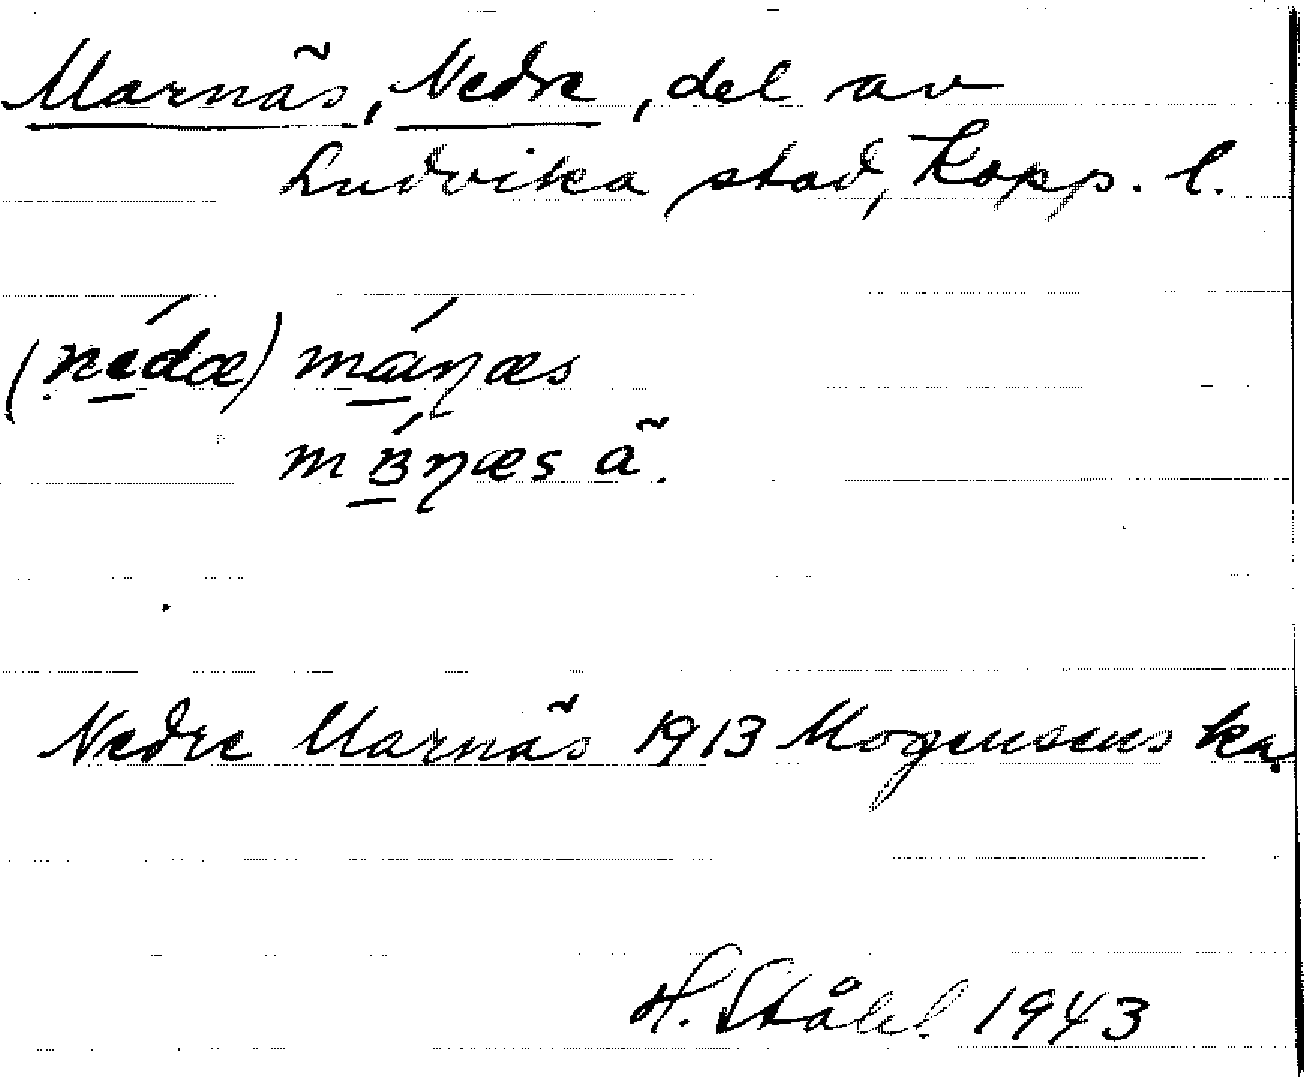 Marnäs, Nedre, del av
Ludvika stad, Kopp. l.
(nedæ) máŋæs
mɜ́ŋæs ä.
Nedre Marnäs 1913 Mogensens ka.
H. Ståhl 1943